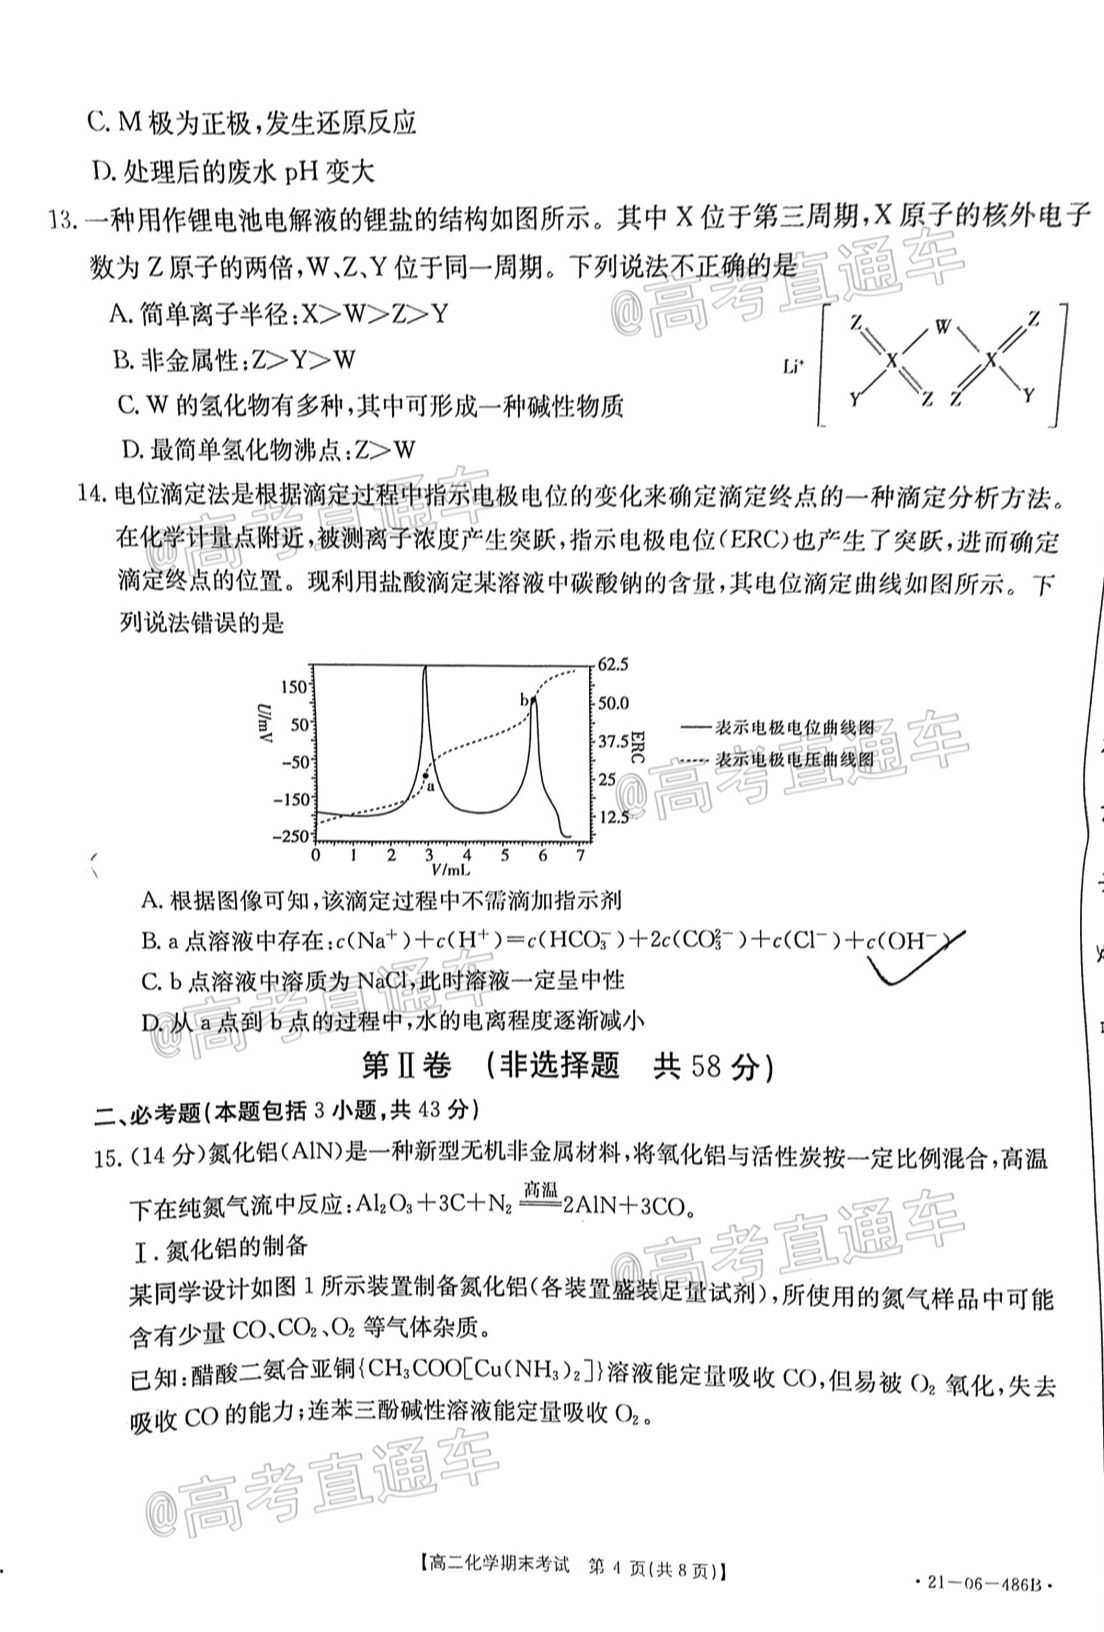 C. M 极为正极,发生还原反应
D. 处理后的废水 pH 变大
13. 一种用作锂电池电解液的锂盐的结构如图所示。其中 X 位于第三周期,X 原子的核外电子
数为 Z 原子的两倍,W、Z、Y 位于同一周期。下列说法不正确的是
@高考直通车
A. 简单离子半径:X>W>Z>Y
B. 非金属性:Z>Y>W
C. W 的氢化物有多种,其中可形成一种碱性物质
D. 最简单氢化物沸点:Z>W
Li⁺
Z W Z
X X
Y Z Z Y
14. 电位滴定法是根据滴定过程中指示电极电位的变化来确定滴定终点的一种滴定分析方法。
@高考直通车
在化学计量点附近,被测离子浓度产生突跃,指示电极电位(ERC)也产生了突跃,进而确定
滴定终点的位置。现利用盐酸滴定某溶液中碳酸钠的含量,其电位滴定曲线如图所示。下
列说法错误的是
U/mV
150
50
-50
-150
-250
0 1 2 3 4 5 6 7
V/mL
a
b
62.5
50.0
37.5
25
12.5
ERC
表示电极电位曲线图
表示电极电压曲线图
@高考直通车
A. 根据图像可知,该滴定过程中不需滴加指示剂
B. a 点溶液中存在:c(Na⁺)+c(H⁺)=c(HCO₃⁻)+2c(CO₃²⁻)+c(Cl⁻)+c(OH⁻)
C. b 点溶液中溶质为 NaCl,此时溶液一定呈中性
@高考直通车
D. 从 a 点到 b 点的过程中,水的电离程度逐渐减小
第Ⅱ卷 (非选择题 共 58 分)
二、必考题(本题包括 3 小题,共 43 分)
15. (14 分)氮化铝(AlN)是一种新型无机非金属材料,将氧化铝与活性炭按一定比例混合,高温
下在纯氮气流中反应:Al₂O₃+3C+N₂ 高温═ 2AlN+3CO。
Ⅰ. 氮化铝的制备
@高考直通车
某同学设计如图 1 所示装置制备氮化铝(各装置盛装足量试剂),所使用的氮气样品中可能
含有少量 CO、CO₂、O₂ 等气体杂质。
已知:醋酸二氨合亚铜{CH₃COO[Cu(NH₃)₂]}溶液能定量吸收 CO,但易被 O₂ 氧化,失去
吸收 CO 的能力;连苯三酚碱性溶液能定量吸收 O₂。
@高考直通车
【高二化学期末考试 第 4 页(共 8 页)】
·21-06-486B·